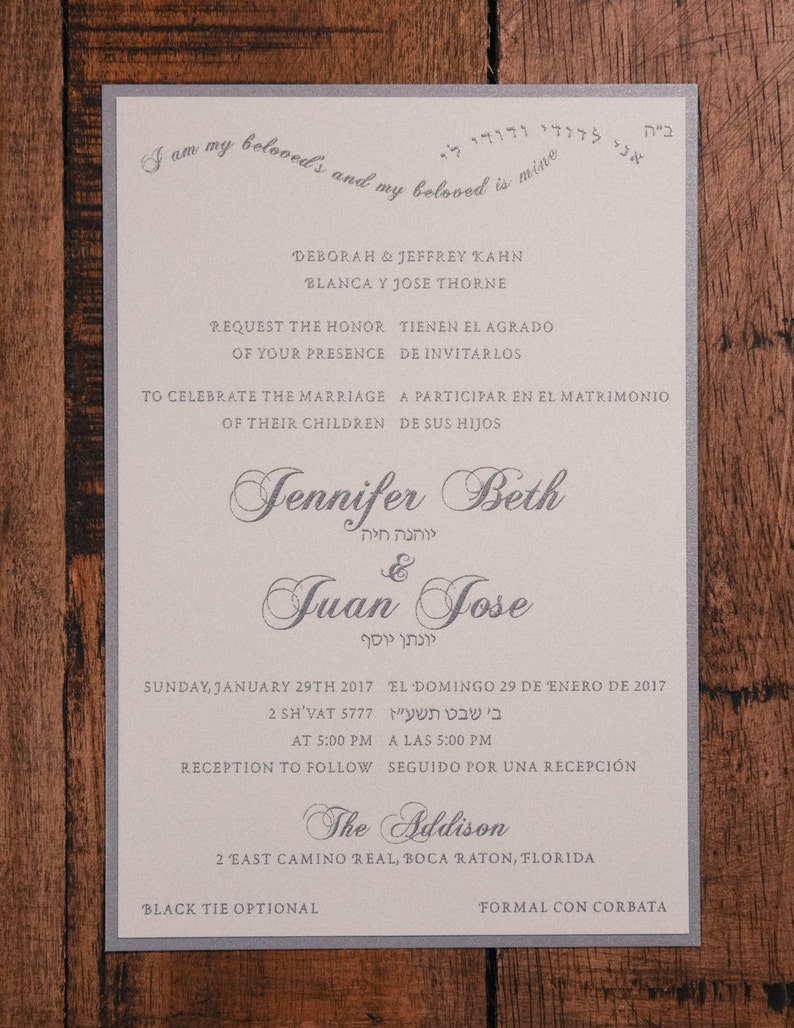 ב"ה
אני לדודי ודודי לי
I am my beloved's and my beloved is mine
DEBORAH & JEFFREY KAHN
BLANCA Y JOSE THORNE
REQUEST THE HONOR TIENEN EL AGRADO
OF YOUR PRESENCE DE INVITARLOS
TO CELEBRATE THE MARRIAGE A PARTICIPAR EN EL MATRIMONIO
OF THEIR CHILDREN DE SUS HIJOS
Jennifer Beth
יוהנה חיה
&
Juan Jose
יונתן יוסף
SUNDAY, JANUARY 29TH 2017 EL DOMINGO 29 DE ENERO DE 2017
2 SH'VAT 5777 ב' שבט תשע"ז
AT 5:00 PM A LAS 5:00 PM
RECEPTION TO FOLLOW SEGUIDO POR UNA RECEPCIÓN
The Addison
2 EAST CAMINO REAL, BOCA RATON, FLORIDA
BLACK TIE OPTIONAL FORMAL CON CORBATA